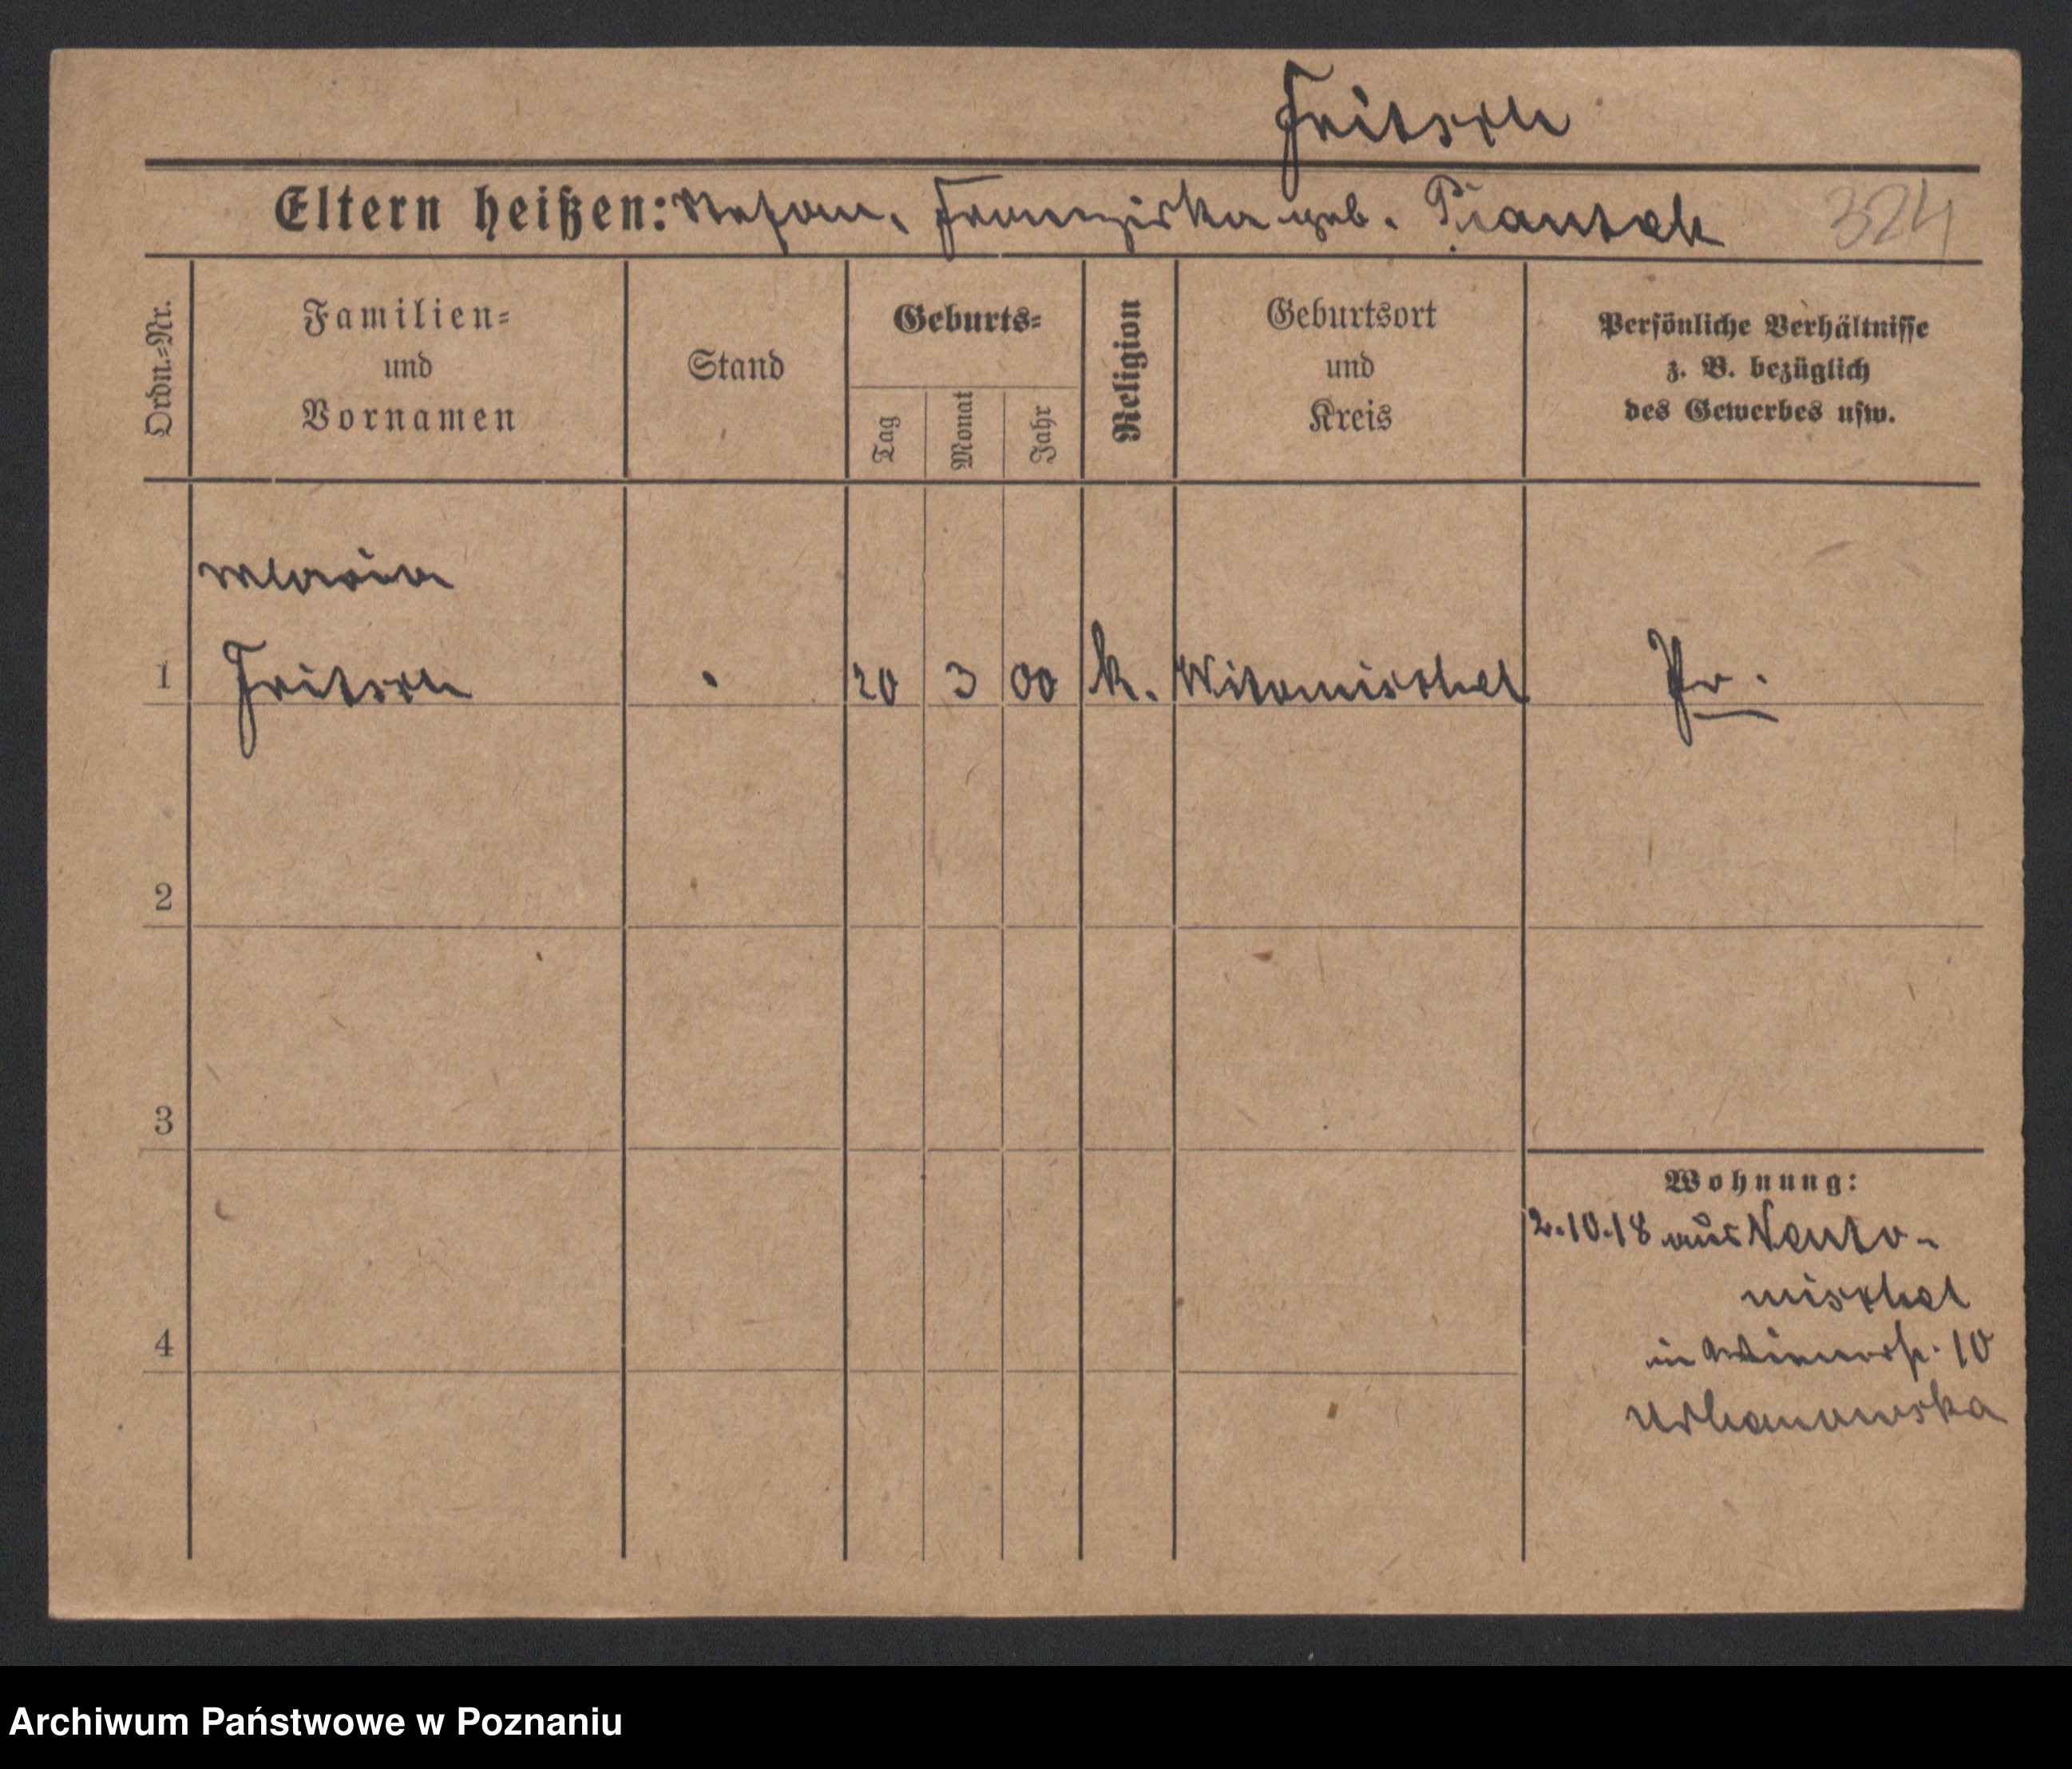 Fritsch
Eltern heißen: Stefan, Franziska geb. Piantek
324
Ordn.=Nr.
Familien=
und
Vornamen
Stand
Geburts=
Tag
Monat
Jahr
Religion
Geburtsort
und
Kreis
Persönliche Verhältnisse
z. B. bezüglich
des Gewerbes usw.
Maria
1 Fritsch 20 3 00 k. Witomischel Pr.
2
3
Wohnung:
2.10.18 aus Neuto-
mischel
4
in 10
Urbanowska
Archiwum Państwowe w Poznaniu